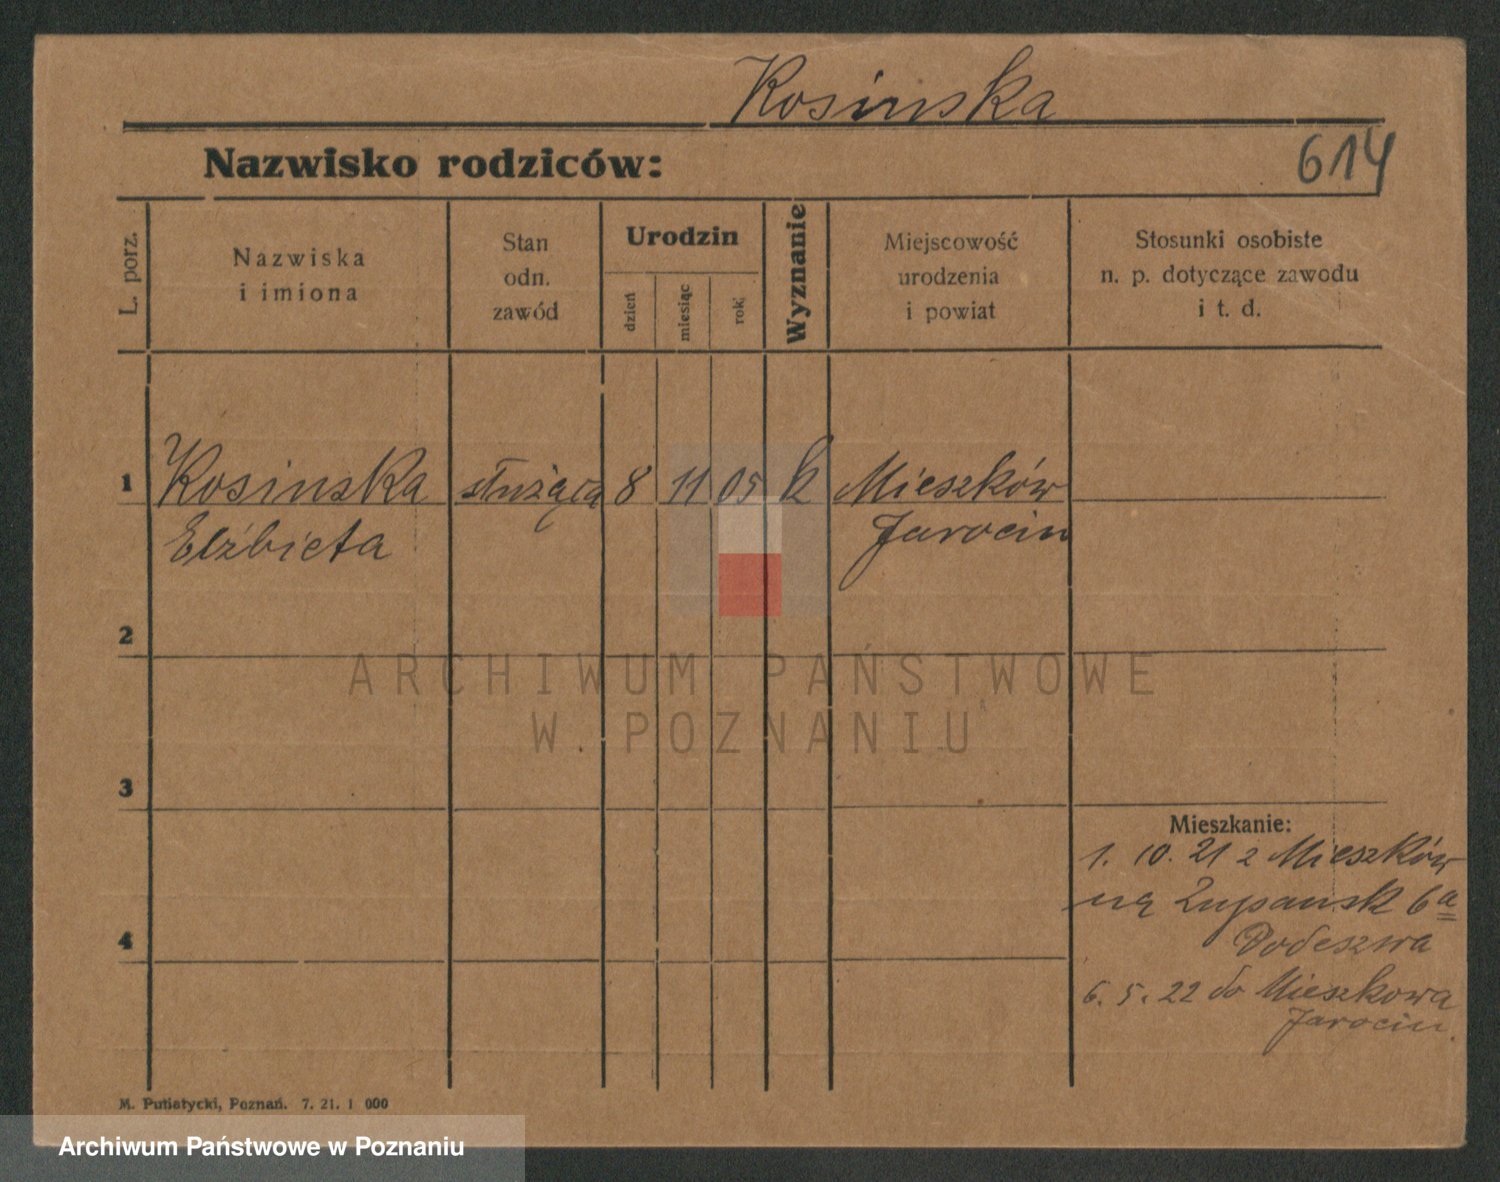 Kosinska
Nazwisko rodziców:
614
L. porz.
Nazwiska
i imiona
Stan
odn.
zawód
Urodzin
dzień
miesiąc
rok
Wyznanie
Miejscowość
urodzenia
i powiat
Stosunki osobiste
n. p. dotyczące zawodu
i t. d.
1
Kosinska
Elżbieta
służąca
8
11
05
k
Mieszków
Jarocin
2
ARCHIWUM PAŃSTWOWE
W POZNANIU
3
Mieszkanie:
1. 10. 21 z Mieszków
na Zupansk 6a
Podeszwa
4
6. 5. 22 do Mieszkowa
Jarocin
M. Putiatycki, Poznań. 7. 21. 1 000
Archiwum Państwowe w Poznaniu